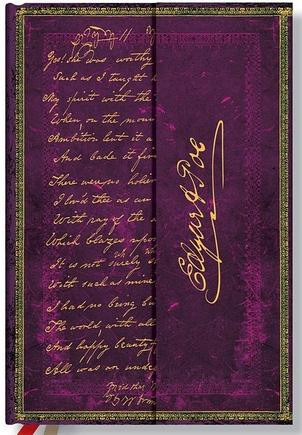 Yes! she was worthy
Such as I taught h
My spirit with the
When on the moun
Ambition lent it a
And bade it fir
There were no holier
I lov'd thee as an
With ray of the
Which blazes upon
It is not surely s
With such as mine
I had no being bu
The world with all
And happy beauty
All was an unde
Edgar A Poe